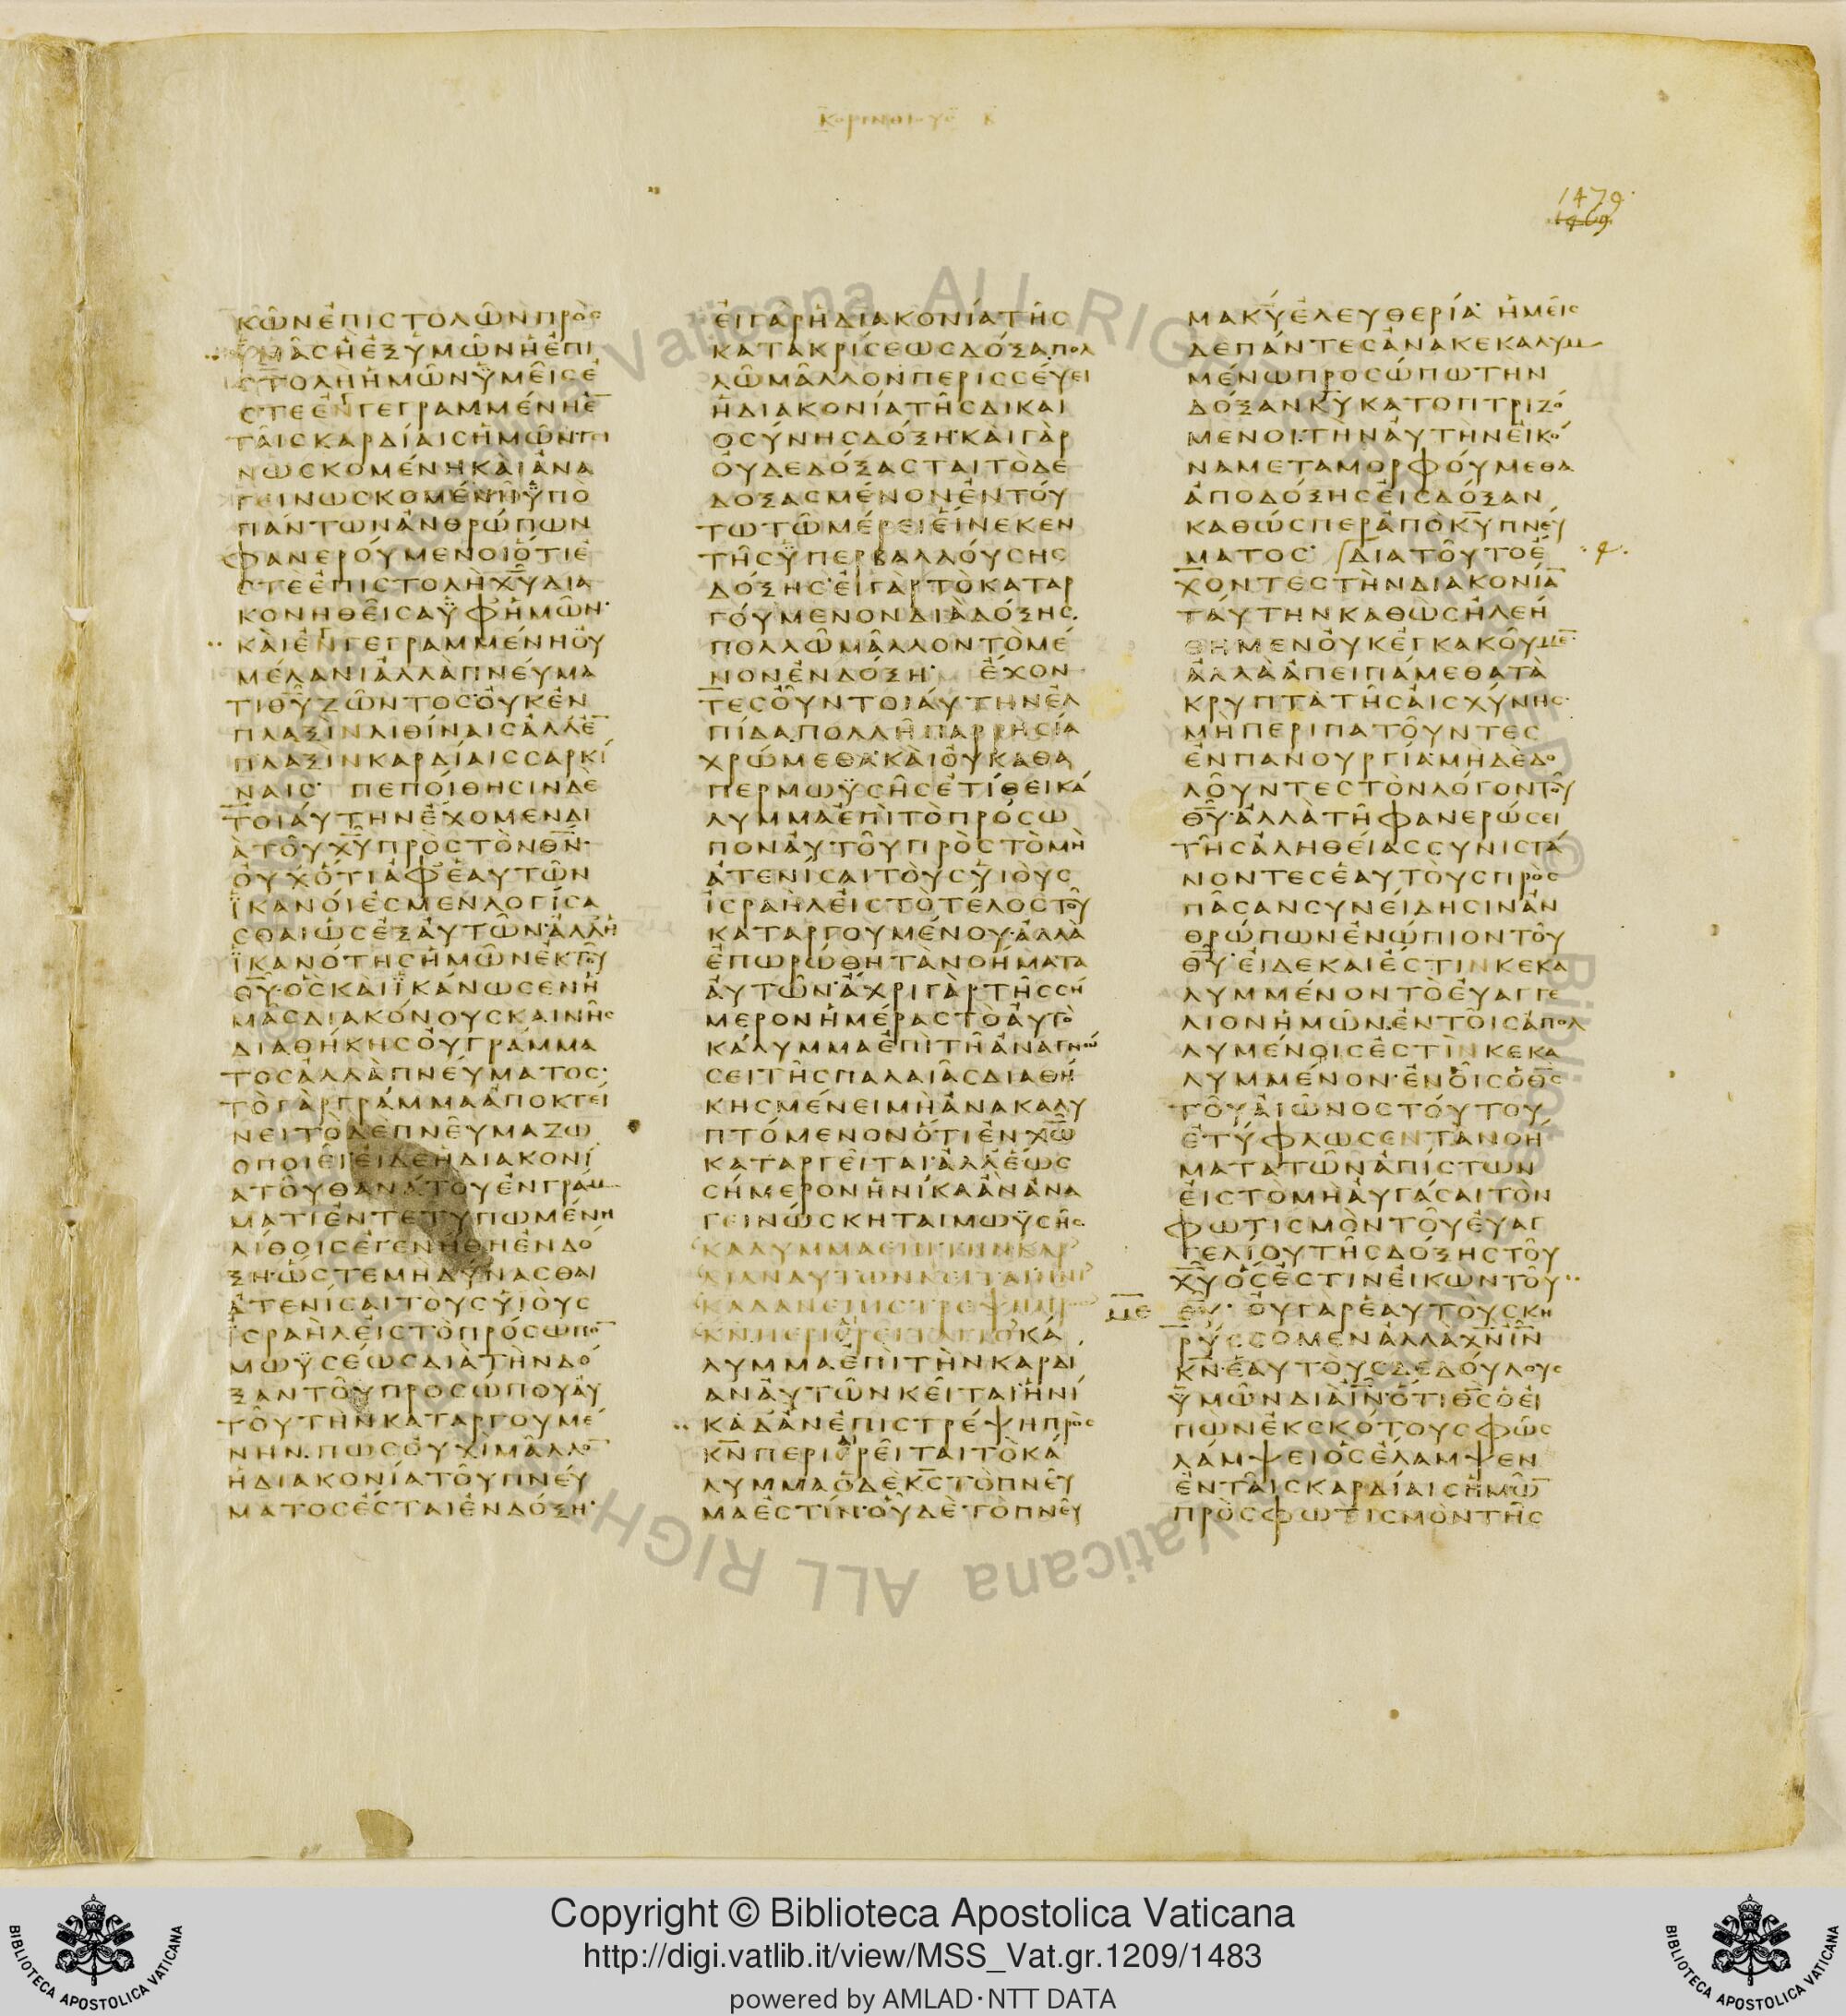 Κορινθιους β
1479
1469
κῶνἐπιστολῶνπρὸς
ὑμᾶςἢἐξὑμῶνἡἐπι
στολὴἡμῶνὑμεῖςἐ
στεἐνγεγραμμένηἐ
ταῖςκαρδίαιςἡμῶνγι
νωσκομένηκαὶἀνα
γεινωσκομένηὑπὸ
πάντωνἀνθρώπων
φανερούμενοιὅτιἐ
στεἐπιστολὴχ̅υ̅δια
κονηθεῖσαὑφἡμῶν·
καὶἐνγεγραμμένηοὐ
μέλανιἀλλὰπνεύμα
τιθ̅υ̅ζῶντος·οὐκἐν
πλαξὶνλιθίναιςἀλλἐ̅
πλαξὶνκαρδίαιςσαρκί
ναις· πεποίθησινδὲ
τοιαύτηνἔχομενδι
ὰτοῦχ̅υ̅πρὸςτὸνθ̅ν̅·
οὐχὅτιἀφἑαυτῶν
ἱκανοίἐσμενλογίσα
σθαιὡςἐξαὑτῶν·ἀλλἡ
ἱκανότηςἡμῶνἐκτοῦ
θ̅υ̅·ὃςκαὶἱκάνωσενἡ
μᾶςδιακόνουςκαινῆς
διαθήκηςοὐγράμμα
τοςἀλλὰπνεύματος·
τὸγὰργράμμαἀποκτεί
νειτὸδὲπνεῦμαζω
οποιεῖ·εἰδεἡδιακονί
ατοῦθανάτουἐνγράμ
ματιἐντετυπωμένη
λίθοιςἐγενήθηἐνδό
ξη·ὥστεμὴδύνασθαι
ἀτενίσαιτοὺςυἱοὺς
ἰσραὴλεἰςτὸπρόσωπο̅
μωϋσέωςδιὰτὴνδό
ξαντοῦπροσώπουαὐ
τοῦτὴνκαταργουμέ
νην.πωςοὐχὶμᾶλλο̅
ἡδιακονίατοῦπνεύ
ματοςἔσταιἐνδόξη·
εἰγὰρἡδιακονίατῆς
κατακρίσεωςδόξαπολ
λῶμᾶλλονπερισσεύει
ἡδιακονίατῆςδικαι
οσύνηςδόξη·καὶγὰρ
οὐδεδόξασταιτὸδε
δοξασμένονἐντού
τωτῶμέρειεἵνεκεν
τῆςὑπερβαλλούσης
δόξης·εἰγὰρτὸκαταρ
γούμενονδιὰδόξης.
πολλῶμᾶλλοντὸμέ
νονἐνδόξη· ἔχον
τεςοὖντοιαύτηνἐλ
πίδαπολλῆπαρρησία
χρώμεθα·καὶοὐκαθα
περμωϋσῆςἐτίθεικά
λυμμαἐπὶτὸπρόσω
ποναὐτοῦπρὸςτὸμὴ
ἀτενίσαιτοὺςυἱοὺς
ἰσραὴλεἰςτὸτέλοςτοῦ
καταργουμένου·ἀλλὰ
ἐπωρώθητανοήματα
αὐτῶν·ἄχριγὰρτῆςσή
μερονἡμέραςτὸαὐτὸ
κάλυμμαἐπὶτῆἀναγνώ
σειτῆςπαλαιᾶςδιαθή
κηςμένειμὴἀνακαλυ
πτόμενονὅτιἐνχ̅ω̅
καταργεῖται·ἀλλἕως
σήμερονἡνίκαἀνἀνα
γεινώσκηταιμωϋσῆς
καλυμμαεπιτηνκαρδ
ιαναυτωνκειταιηνι
καδανεπιστρεψηπρ
κ̅ν̅περιαιρειταιτοκά
λυμμαἐπὶτὴνκαρδί
αναὐτῶνκεῖται·ἡνί
καδἀνἐπιστρέψηπρὸς
κ̅ν̅περιαιρεῖταιτὸκά
λυμμαὁδὲκ̅ς̅τὸπνεῦ
μαἐστίν·οὗδὲτὸπνεῦ
μακ̅υ̅ἐλευθερία· ἡμεῖς
δεπάντεςἀνακεκαλυμ
μένωπροσώπωτην
δόξανκ̅υ̅κατοπτριζό
μενοι·τὴναὐτὴνεἰκό
ναμεταμορφούμεθα
ἀποδόξηςεἰςδόξαν
καθώσπερἀπὸκ̅υ̅πνεύ
ματος· διατοῦτοἔ
χοντεςτὴνδιακονία̅
ταύτηνκαθὼςἠλεή
θημενοὐκἐγκακοῦμε̅
ἀλλὰἀπειπάμεθατὰ
κρυπτὰτῆςαἰσχύνης·
μὴπεριπατοῦντες
ἐνπανουργία·μηδὲδο
λοῦντεςτὸνλόγοντοῦ
θ̅υ̅·ἀλλὰτῆφανερώσει
τῆςἀληθείαςσυνιστά
νοντεςἑαυτοὺςπρὸς
πᾶσανσυνείδησινἀν
θρώπωνἐνώπιοντοῦ
θ̅υ̅·εἰδεκαιἔστινκεκα
λυμμένοντὸεὐαγγε
λιονἡμῶν.ἐντοῖςἀπολ
λυμένοιςἐστὶνκεκα
λυμμένον·ἐνοἷςὁθ̅ς̅
τοῦαἰῶνοςτούτου
ἐτύφλωσεντὰνοή
ματατῶνἀπίστων
εἰςτὸμὴαὐγάσαιτὸν
φωτισμὸντοῦεὐαγ
γελίουτῆςδόξηςτοῦ
χ̅υ̅ὅςἐστινεἰκωντοῦ
με θ̅υ̅· οὐγὰρἑαυτοὺςκη
ρύσσομενἀλλὰχ̅ν̅ι̅ν̅
κ̅ν̅·ἑαυτοὺςδεδούλους
ὑμῶνδιὰι̅ν̅·ὅτιθ̅ς̅ὁεἰ
πωνἐκσκότουςφῶς
λάμψειὃςἔλαμψεν
ἐνταῖςκαρδίαιςἡμῶ̅
πρὸςφωτισμὸντῆς
Copyright © Biblioteca Apostolica Vaticana
http://digi.vatlib.it/view/MSS_Vat.gr.1209/1483
powered by AMLAD·NTT DATA
BIBLIOTECA APOSTOLICA VATICANA
BIBLIOTECA APOSTOLICA VATICANA